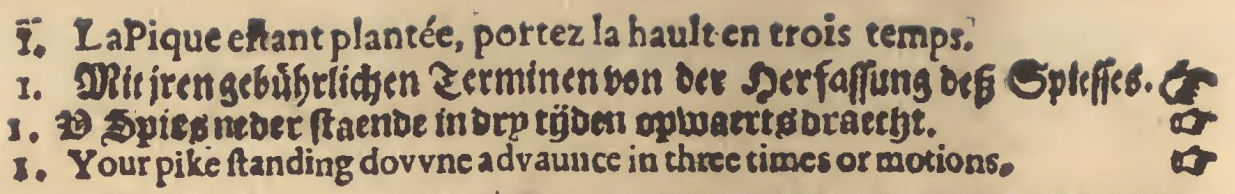 1. La Pique eſtant plantée, portez la hault en trois temps.
1. Mit jren gebührlichen Terminen von der Herfaſſung deß Spieſſes. ☞
1. V Spies neder ſtaende in dry tijden opwaerts draecht. ☞
1. Your pike ſtanding dovvne advaunce in three times or motions. ☞